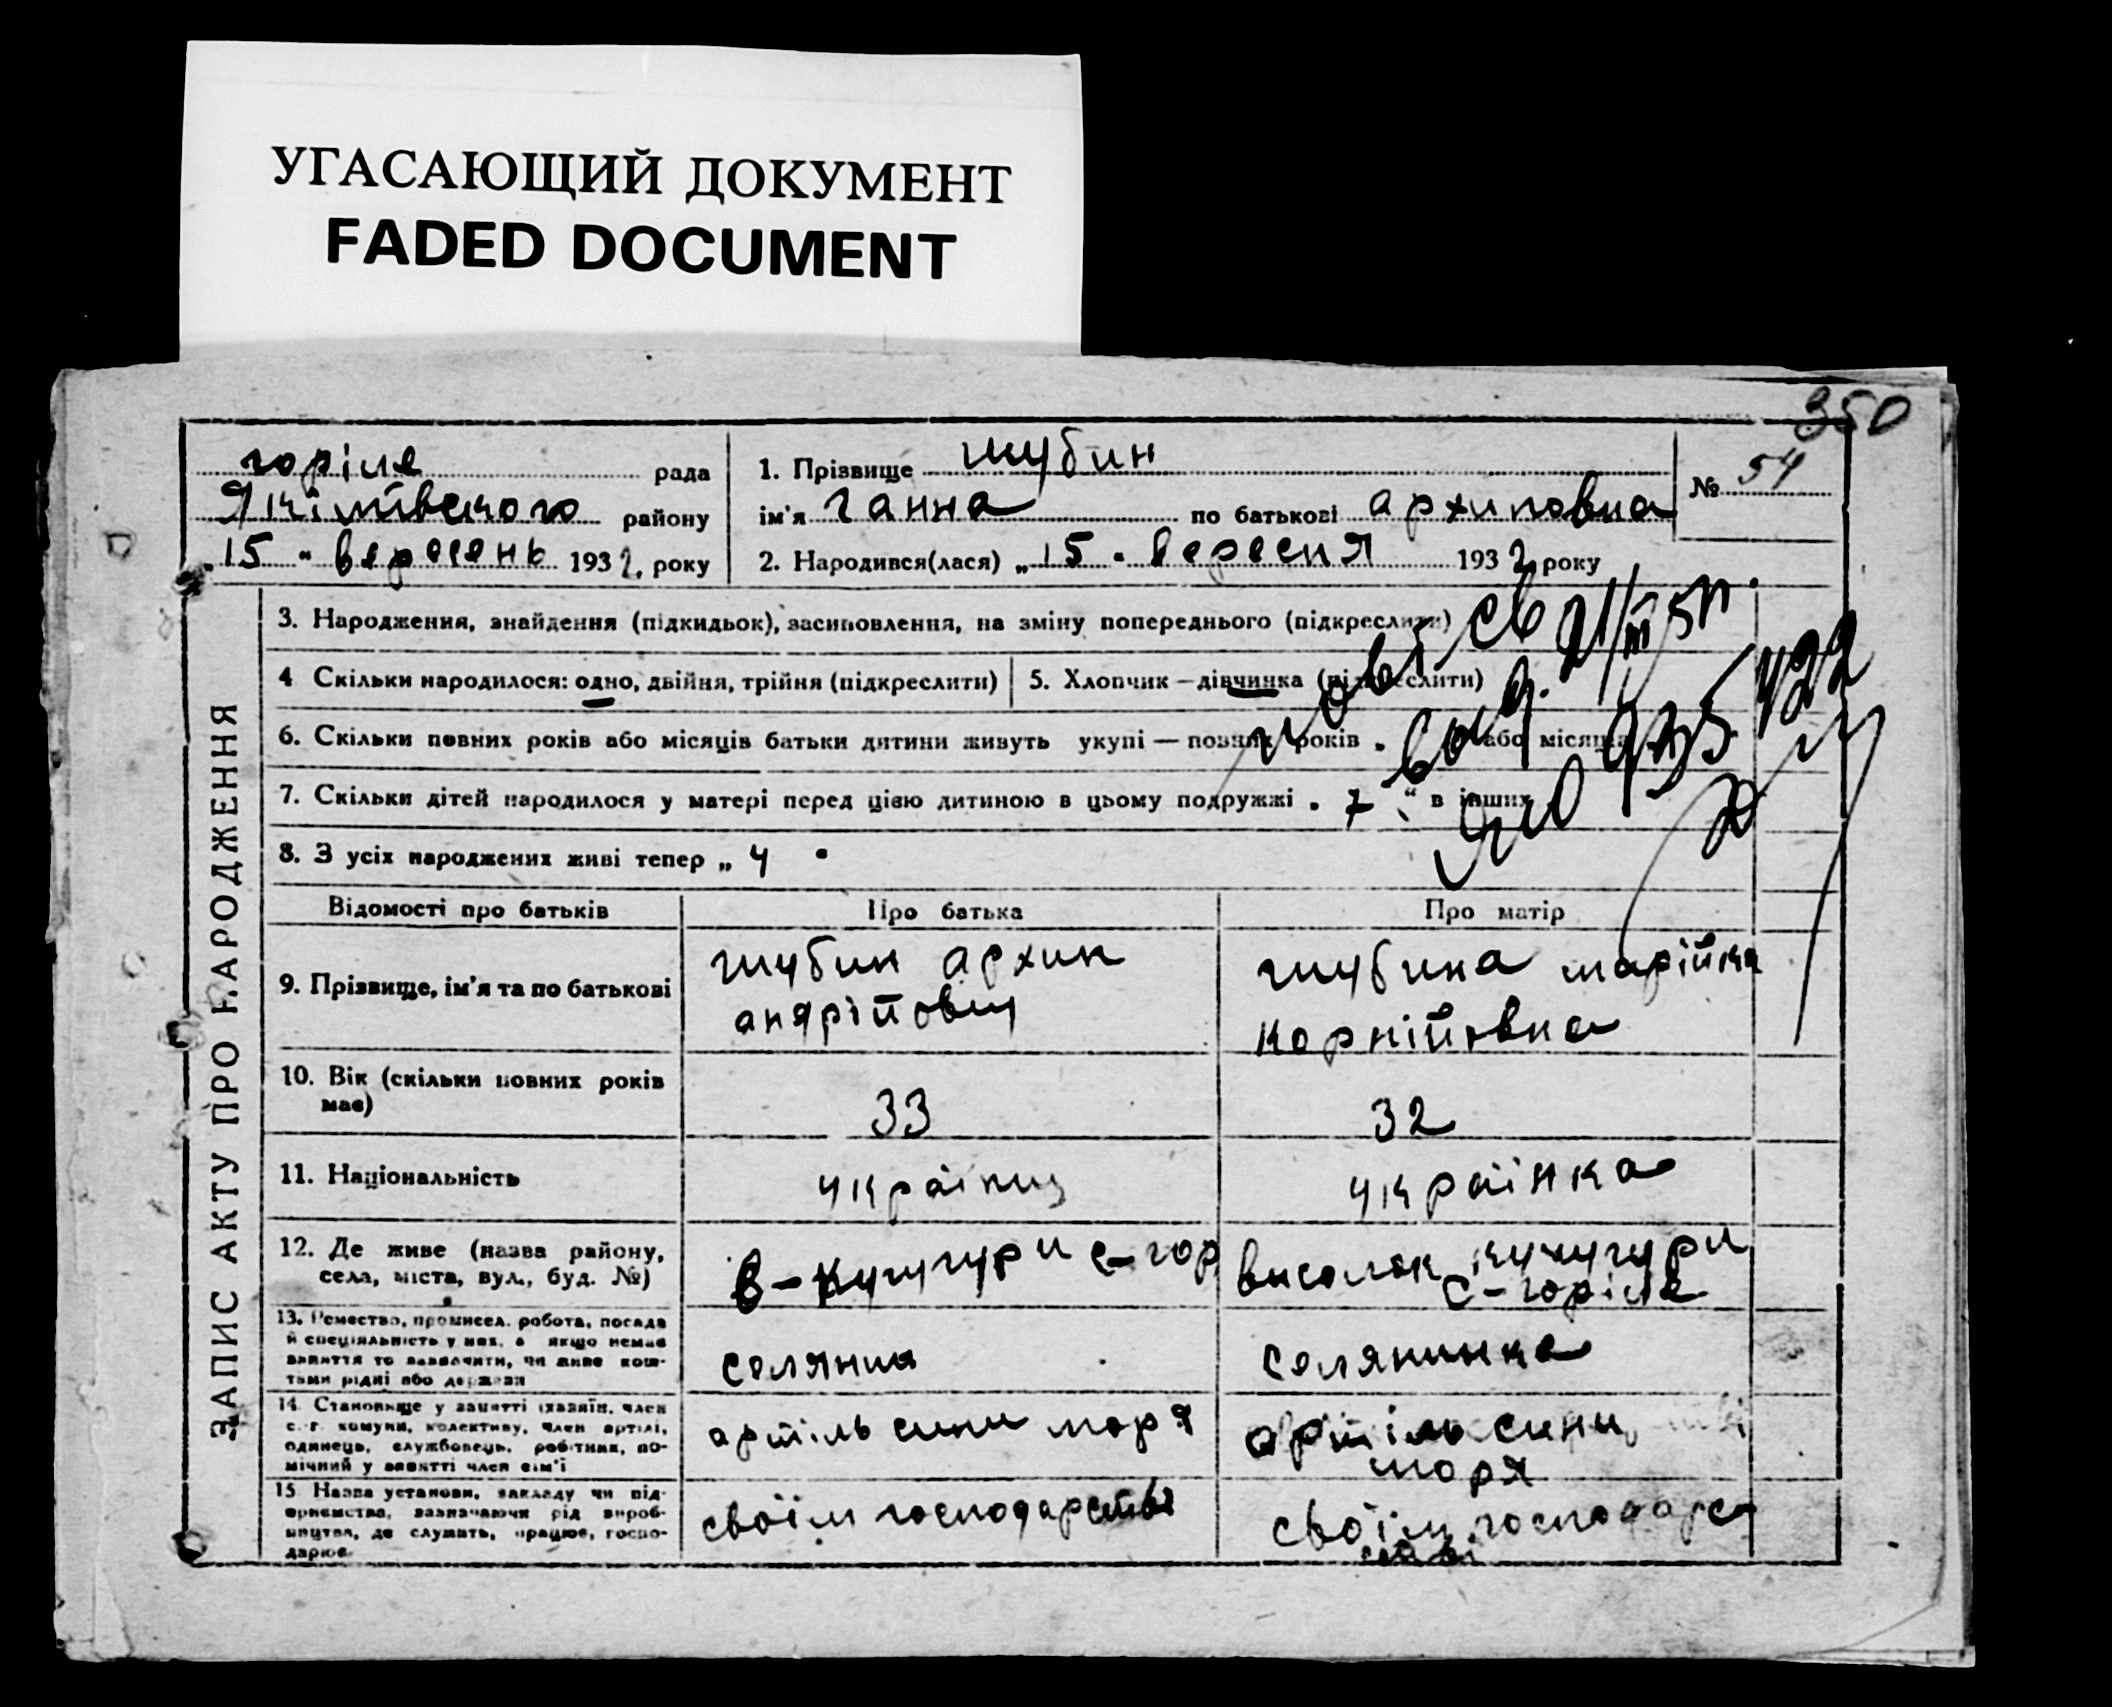 УГАСАЮЩИЙ ДОКУМЕНТ
FADED DOCUMENT
350
горіле рада
Якімівського району
„15“ вересень 1932 року
1. Прізвище шубин
ім'я ганна по батькові архиповна
2. Народився(лася) „15“ вересня 1932 року
№ 54
ЗАПИС АКТУ ПРО НАРОДЖЕННЯ
3. Народження, знайдення (підкидьок), засиновлення, на зміну попереднього (підкреслити)
4 Скільки народилося: одно, двійня, трійня (підкреслити)
5. Хлопчик — дівчинка (підкреслити)
6. Скільки повних років або місяців батьки дитини живуть укупі — повних років „ або місяців
7. Скільки дітей народилося у матері перед цією дитиною в цьому подружжі „7“ в інших
8. З усіх народжених живі тепер „4“
Відомості про батьків
Про батька
Про матір
9. Прізвище, ім'я та по батькові
шубин архип
андрійович
шубина марійка
корнійовна
10. Вік (скільки повних років
має)
33
32
11. Національність
українц
українка
12. Де живе (назва району,
села, міста, вул., буд. №)
в-кучугури с-гор
виселок кучугури
с-горіле
13. Ремество, промисел, робота, посада
й спеціяльність у них, а якщо немає
заняття то зазначити, чи живе кош-
тами рідні або держави
селянин
селянинка
14. Становище у занятті (хазяїн, член
с.-г. комуни, колективу, член артілі,
одинець, службовець, робітник, по-
мічний у занятті член сім'ї
артіль сини моря
артіль сини
моря
15 Назва установи, закладу чи під-
приємства, зазначаючи рід вироб-
ництва, де служить, працює, госпо-
дарює
своїм господарстві
своїм господарс
стві